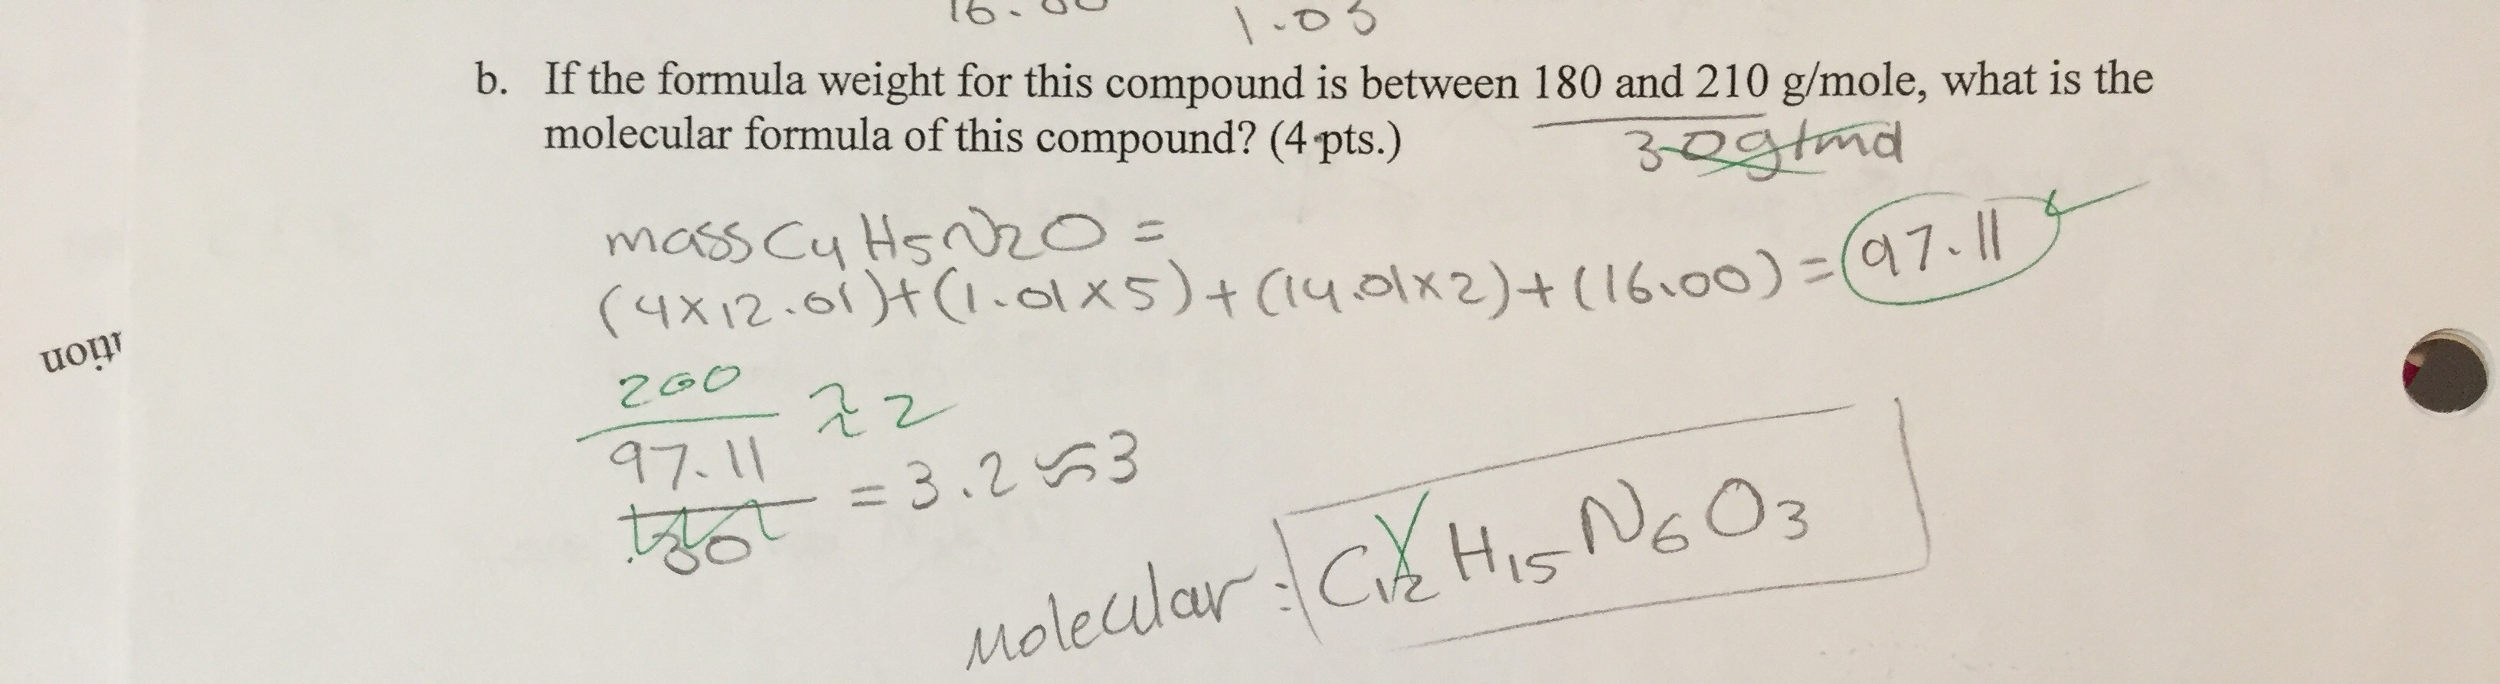 16.00 1.03
b. If the formula weight for this compound is between 180 and 210 g/mole, what is the
molecular formula of this compound? (4 pts.)
30g/mol
mass C4H5N2O =
(4x12.01)+(1.01x5)+(14.01x2)+(16.00) = 97.11
200
≈ 2
97.11
= 3.2 ≈ 3
30
Molecular: C12H15N6O3
ition